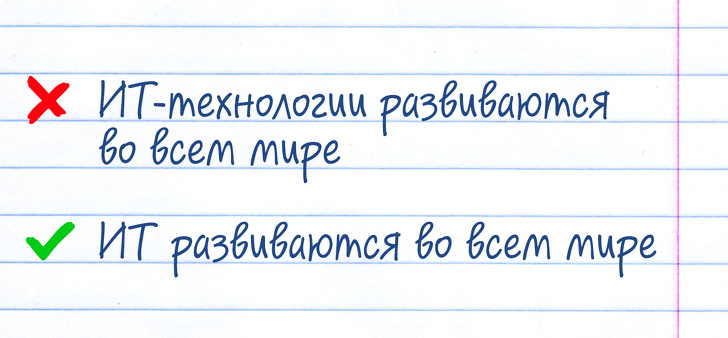 ИТ-технологии развиваются
во всем мире
ИТ развиваются во всем мире